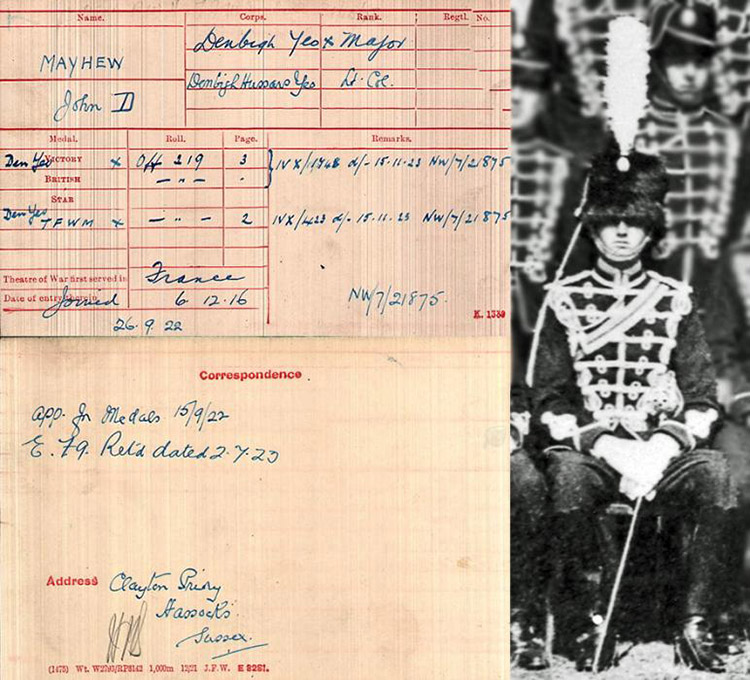 Name. Corps. Rank. Regtl. No.
MAYHEW Denbigh Yeo x Major
John D Denbigh Hussars Yeo Lt Col.
Medal. Roll. Page. Remarks.
Den Yeo VICTORY x OH 219 3 IVX/1348 d/- 15.11.23 NW/7/21875
BRITISH — " — "
STAR
Den Yeo TFWM x — " — 2 IVX/423 d/- 15.11.23 NW/7/21875
Theatre of War first served in France
Date of entry therein Joined 6.12.16 NW/7/21875.
26.9.22 K. 1380
Correspondence
app. for Medals 15/9/22
E. F9. Ret'd dated 2.7.23
Address Clayton Priory
Hassocks.
Sussex.
(1475) Wt. W2793/RP8142 1,000m 12/21 J.F.W. E 9261.